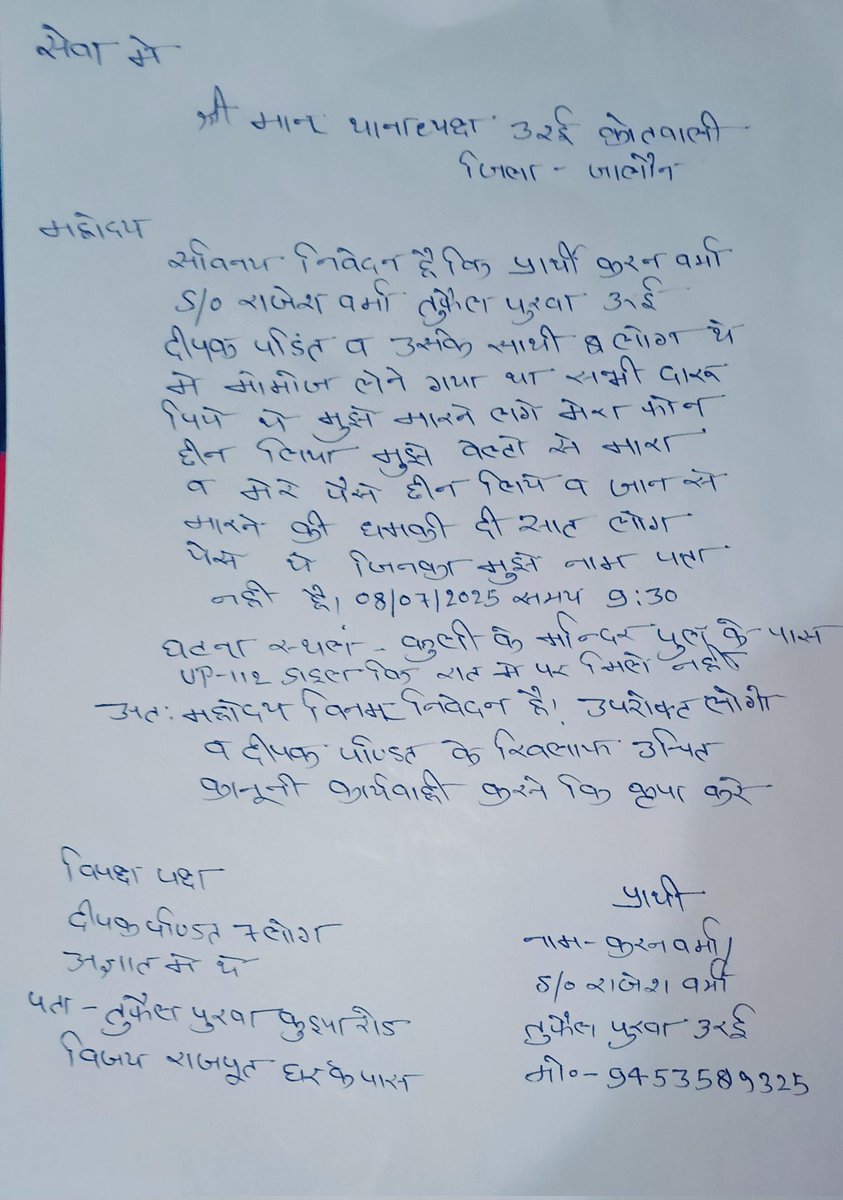 सेवा में
श्री मान थानाध्यक्ष उरई कोतवाली
जिला - जालौन
महोदय
सविनय निवेदन है कि प्रार्थी करन वर्मा
S/O राजेश वर्मा तुफैल पुरवा उरई
दीपक पडिंत व उसके साथी 8 लोग थे
मे मोमोज लेने गया था सभी दारू
पिये थे मुझे मारने लगे मेरा फोन
छीन लिया मुझे बेल्टो से मारा
व मेरे पैसे छीन लिये व जान से
मारने की धमकी दी सात लोग
ऐसे थे जिनका मुझे नाम पता
नही है। 08/07/2025 समय 9:30
घटना स्थल - के मन्दिर पुल के पास
UP-112 डाइल कि रात मे पर मिले नही
अतः महोदय विनम्र निवेदन है। उपरोक्ट लोगो
व दीपक पण्डित के खिलाफ उचित
कानूनी कार्यवाही करने कि कृपा करे
विपक्ष पक्ष
दीपक पण्डित 7 लोग
अज्ञात मे थे
पता - तुफैल पुरवा कुइया रोड
विजय राजपूत घर के पास
प्रार्थी
नाम - करन वर्मा
S/O राजेश वर्मा
तुफैल पुरवा उरई
मो० - 9453589325